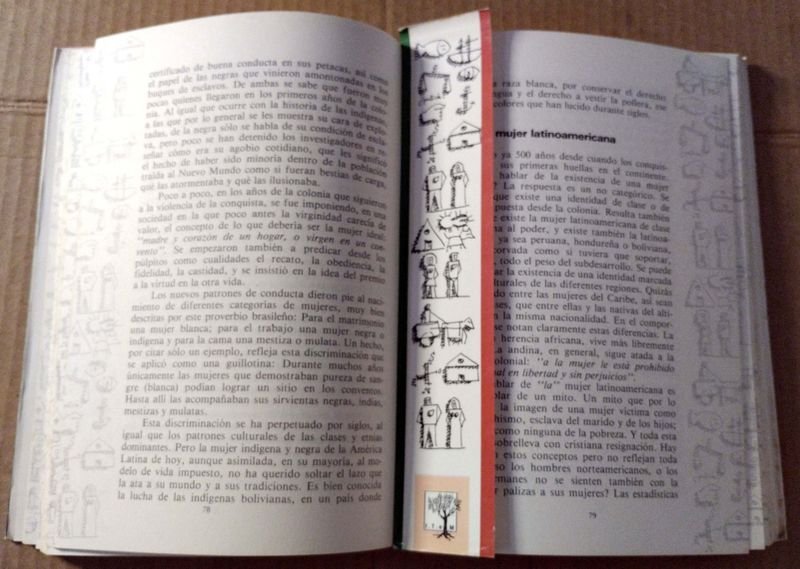 certificado de buena conducta en sus petacas, así como
el papel de las negras que vinieron amontonadas en los
buques de esclavos. De ambas se sabe que fueron muy
pocas quienes llegaron en los primeros años de la colo-
nia. Al igual que ocurre con la historia de las indígenas,
a las que por lo general se les muestra su cara de explo-
tadas, de la negra sólo se habla de su condición de escla-
va, pero poco se han detenido los investigadores en re-
señar cómo era su agobio cotidiano, qué les significó
el hecho de haber sido minoría dentro de la población
traída al Nuevo Mundo como si fueran bestias de carga,
qué las atormentaba y qué las ilusionaba.
Poco a poco, en los años de la colonia que siguieron
a la violencia de la conquista, se fue imponiendo, en una
sociedad en la que poco antes la virginidad carecía de
valor, el concepto de lo que debería ser la mujer ideal:
"madre y corazón de un hogar, o virgen en un con-
vento". Se empezaron también a predicar desde los
púlpitos como cualidades el recato, la obediencia, la
fidelidad, la castidad, y se insistió en la idea del premio
a la virtud en la otra vida.
Los nuevos patrones de conducta dieron pie al naci-
miento de diferentes categorías de mujeres, muy bien
descritas por este proverbio brasileño: Para el matrimonio
una mujer blanca; para el trabajo una mujer negra o
indígena y para la cama una mestiza o mulata. Un hecho,
por citar sólo un ejemplo, refleja esta discriminación que
se aplicó como una guillotina: Durante muchos años
únicamente las mujeres que demostraban pureza de san-
gre (blanca) podían lograr un sitio en los conventos.
Hasta allí las acompañaban sus sirvientas negras, indias,
mestizas y mulatas.
Esta discriminación se ha perpetuado por siglos, al
igual que los patrones culturales de las clases y etnias
dominantes. Pero la mujer indígena y negra de la América
Latina de hoy, aunque asimilada, en su mayoría, al mo-
delo de vida impuesto, no ha querido soltar el lazo que
la ata a su mundo y a sus tradiciones. Es bien conocida
la lucha de las indígenas bolivianas, en un país donde
78
raza blanca, por conservar el derecho
y el derecho a vestir la pollera, ese
colores que han lucido durante siglos.
mujer latinoamericana
ya 500 años desde cuando los conquis-
sus primeras huellas en el continente.
hablar de la existencia de una mujer
? La respuesta es un no categórico. Se
que existe una identidad de clase o de
puesta desde la colonia. Resulta también
existe la mujer latinoamericana de clase
al poder, y existe también la latinoa-
ya sea peruana, hondureña o boliviana,
corvada como si tuviera que soportar,
, todo el peso del subdesarrollo. Se puede
ar la existencia de una identidad marcada
culturales de las diferentes regiones. Quizás
do entre las mujeres del Caribe, así sean
ses, que entre ellas y las nativas del alti-
n la misma nacionalidad. En el compor-
se notan claramente estas diferencias. La
herencia africana, vive más libremente
La andina, en general, sigue atada a la
colonial: "a la mujer le está prohibido
ual en libertad y sin perjuicios".
blar de "la" mujer latinoamericana es
blar de un mito. Un mito que por lo
la imagen de una mujer víctima como
hismo, esclava del marido y de los hijos;
como ninguna de la pobreza. Y toda esta
sobrelleva con cristiana resignación. Hay
estos conceptos pero no reflejan toda
so los hombres norteamericanos, o los
emanes no se sienten también con la
r palizas a sus mujeres? Las estadísticas
79